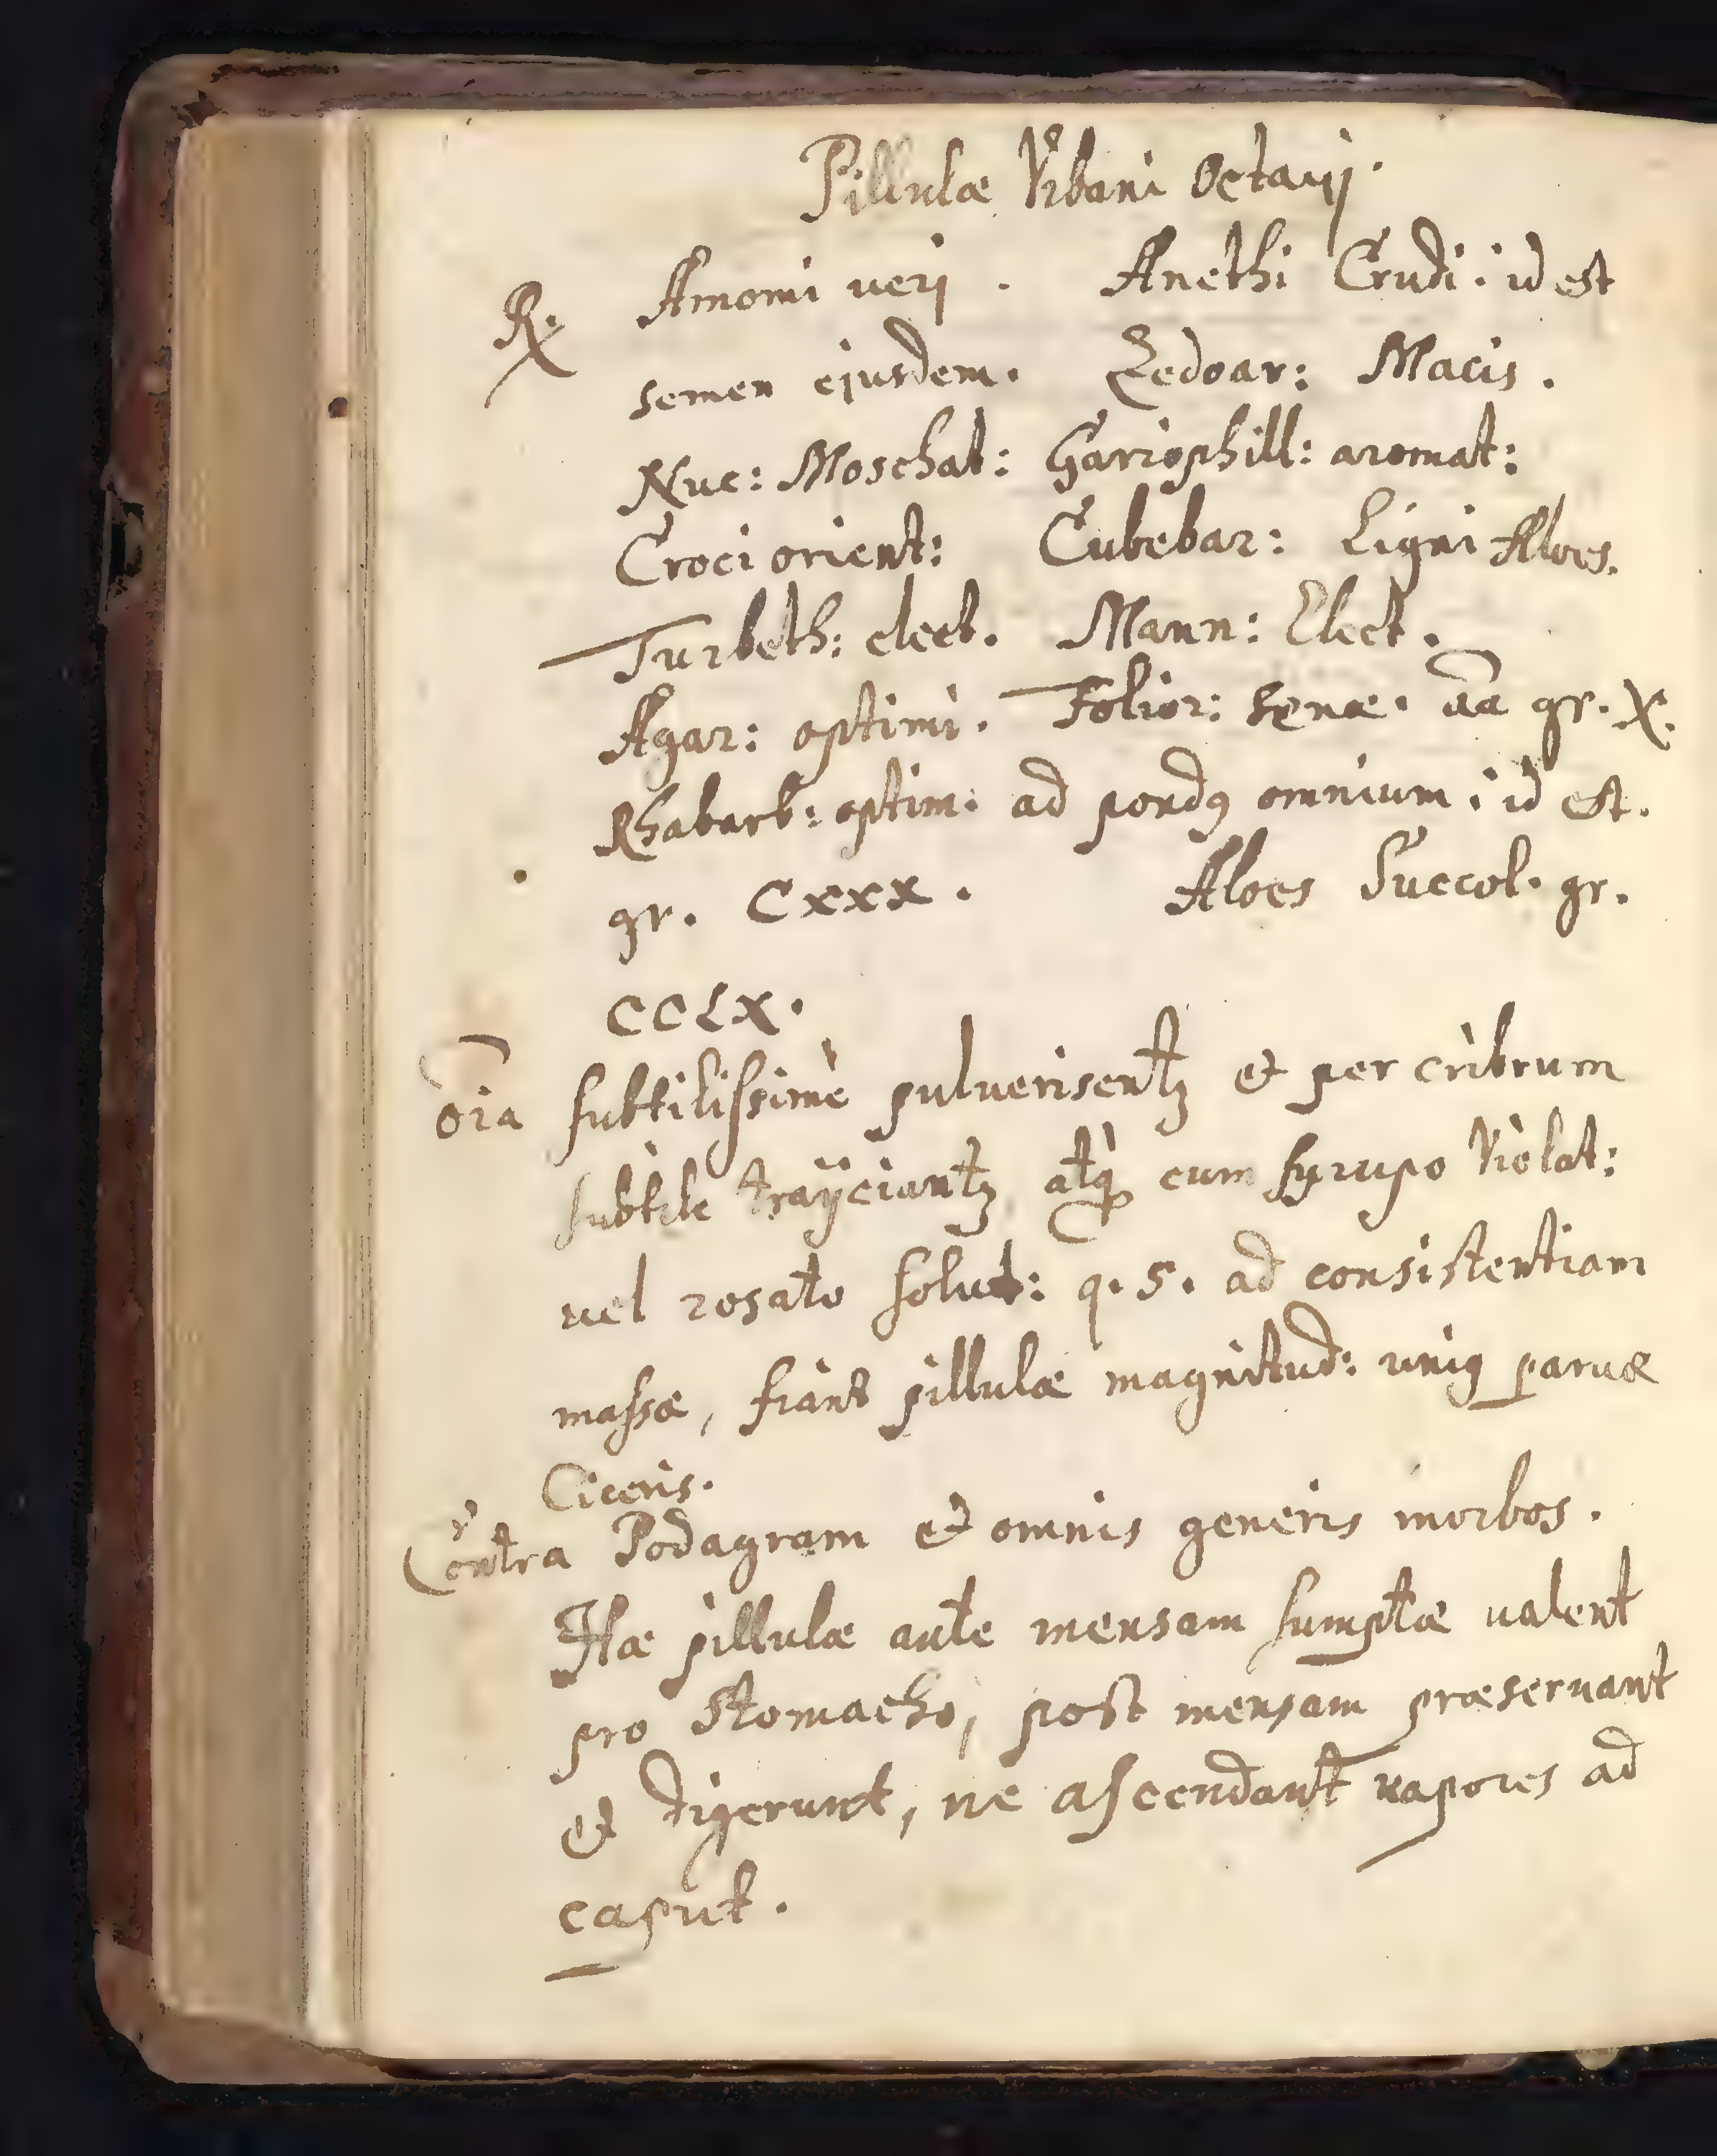 Pillulæ Vrbani Octauij.
℞. Amomi ueri . Anethi Crudi: id est
semen ejusdem. Zedoar: Macis.
Nuc: Moschat: Gariophill: aromat:
Croci orient: Cubebar: Ligni Aloes.
Turbeth: elect. Mann: Elect.
Agar: optimi. Folior: Senæ. āā gr. X.
Rhabarb: optim: ad pondꝰ omnium: id est.
gr. Cxxx. Aloes Succot. gr.
CCLX.
oīa subtilissimè pulverisentꝫ et per cribrum
subtile traijciantꝫ, atq̀ cum syrupo Violat:
uel rosato solut: q. s. ad consistentiam
massæ, fiant pillulæ magnitud: uniꝰ paruæ
Ciceris.
Contra Podagram et omnis generis morbos.
Hæ pillulæ ante mensam sumptæ ualent
pro stomacho, post mensam præseruant
et digerunt, ne ascendant uapores ad
caput.